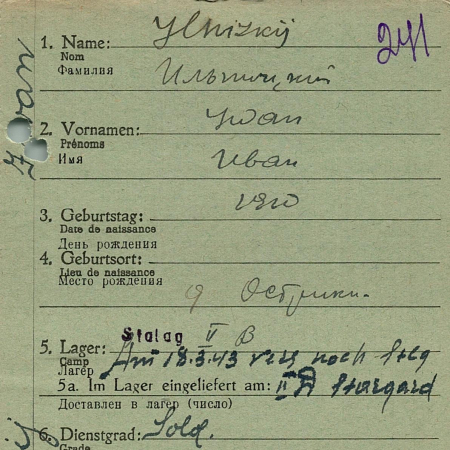 Ilnizkij
241
1. Name:
Nom
Фамилия
Ильницкий
2. Vornamen: Iwan
Prénoms
Имя Иван
3. Geburtstag: 1910
Date de naissance
День рождения
4. Geburtsort:
Lieu de naissance
Место рождения
Острики.
Stalag II B
5. Lager: Am 18.3.43 vers nach Stlg
Camp
Лагерь
5a. Im Lager eingeliefert am: II D Stargard
Доставлен в лагерь (число)
6. Dienstgrad: Sold.
Grade